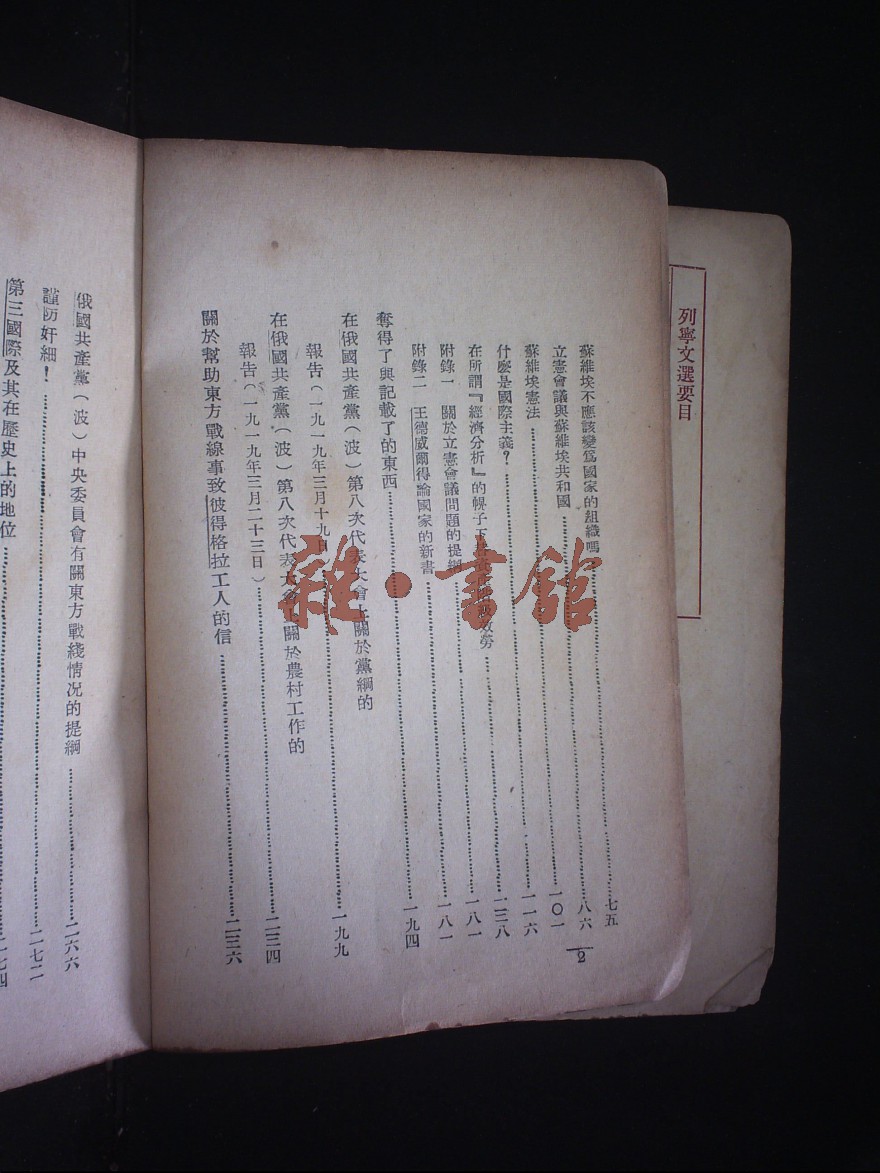 列寧文選要目
蘇維埃不應該變爲國家的組織嗎……七五
立憲會議與蘇維埃共和國……八六
蘇維埃憲法……一〇一
什麼是國際主義？……一一六
在所謂『經濟分析』的幌子下效勞……一三八
附錄一　關於立憲會議問題的提綱……一八一
附錄二　王德威爾得論國家的新書……一八一
奪得了與記載了的東西……一九四
在俄國共產黨（波）第八次代表大會上關於黨綱的
報告（一九一九年三月十九日）……一九九
在俄國共產黨（波）第八次代表大會上關於農村工作的
報告（一九一九年三月二十三日）……二三四
關於幫助東方戰線事致彼得格拉工人的信……二三六
2
俄國共產黨（波）中央委員會有關東方戰綫情況的提綱……二六六
謹防奸細！……二七二
第三國際及其在歷史上的地位……二七四
雜·書館